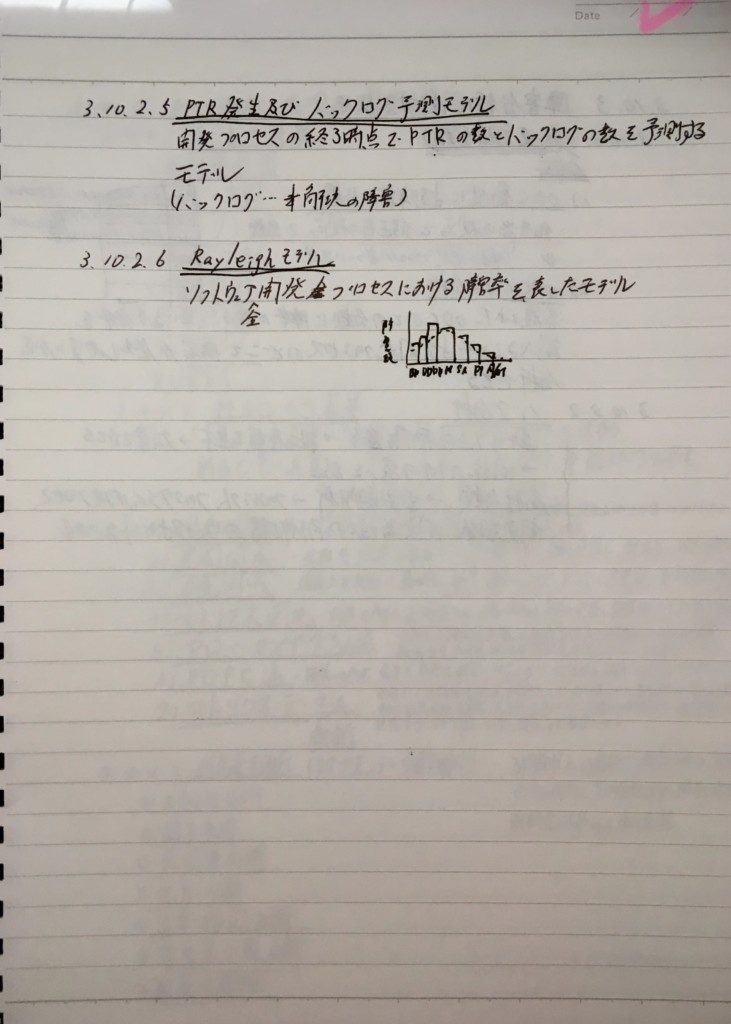 Date
3.10.2.5 PTR発生及びバックログ予測モデル
開発プロセスの終了時点でPTRの数とバックログの数を予測する
モデル
(バックログ…未解決の障害)
3.10.2.6 Rayleighモデル
ソフトウェア開発全プロセスにおける障害率を表したモデル
全